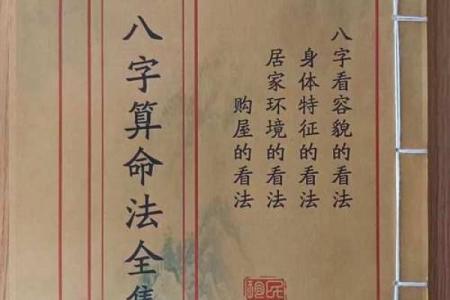 八字看容貌的看法
身体特征的看法
居家环境的看法
购屋的看法
八字算命法全集